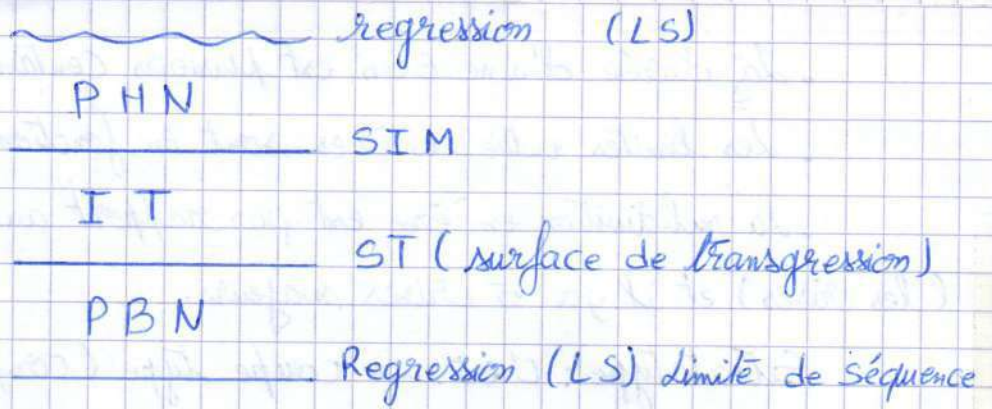 regression (LS)
PHN
SIM
IT
ST (surface de transgression)
PBN
Regression (LS) Limite de séquence